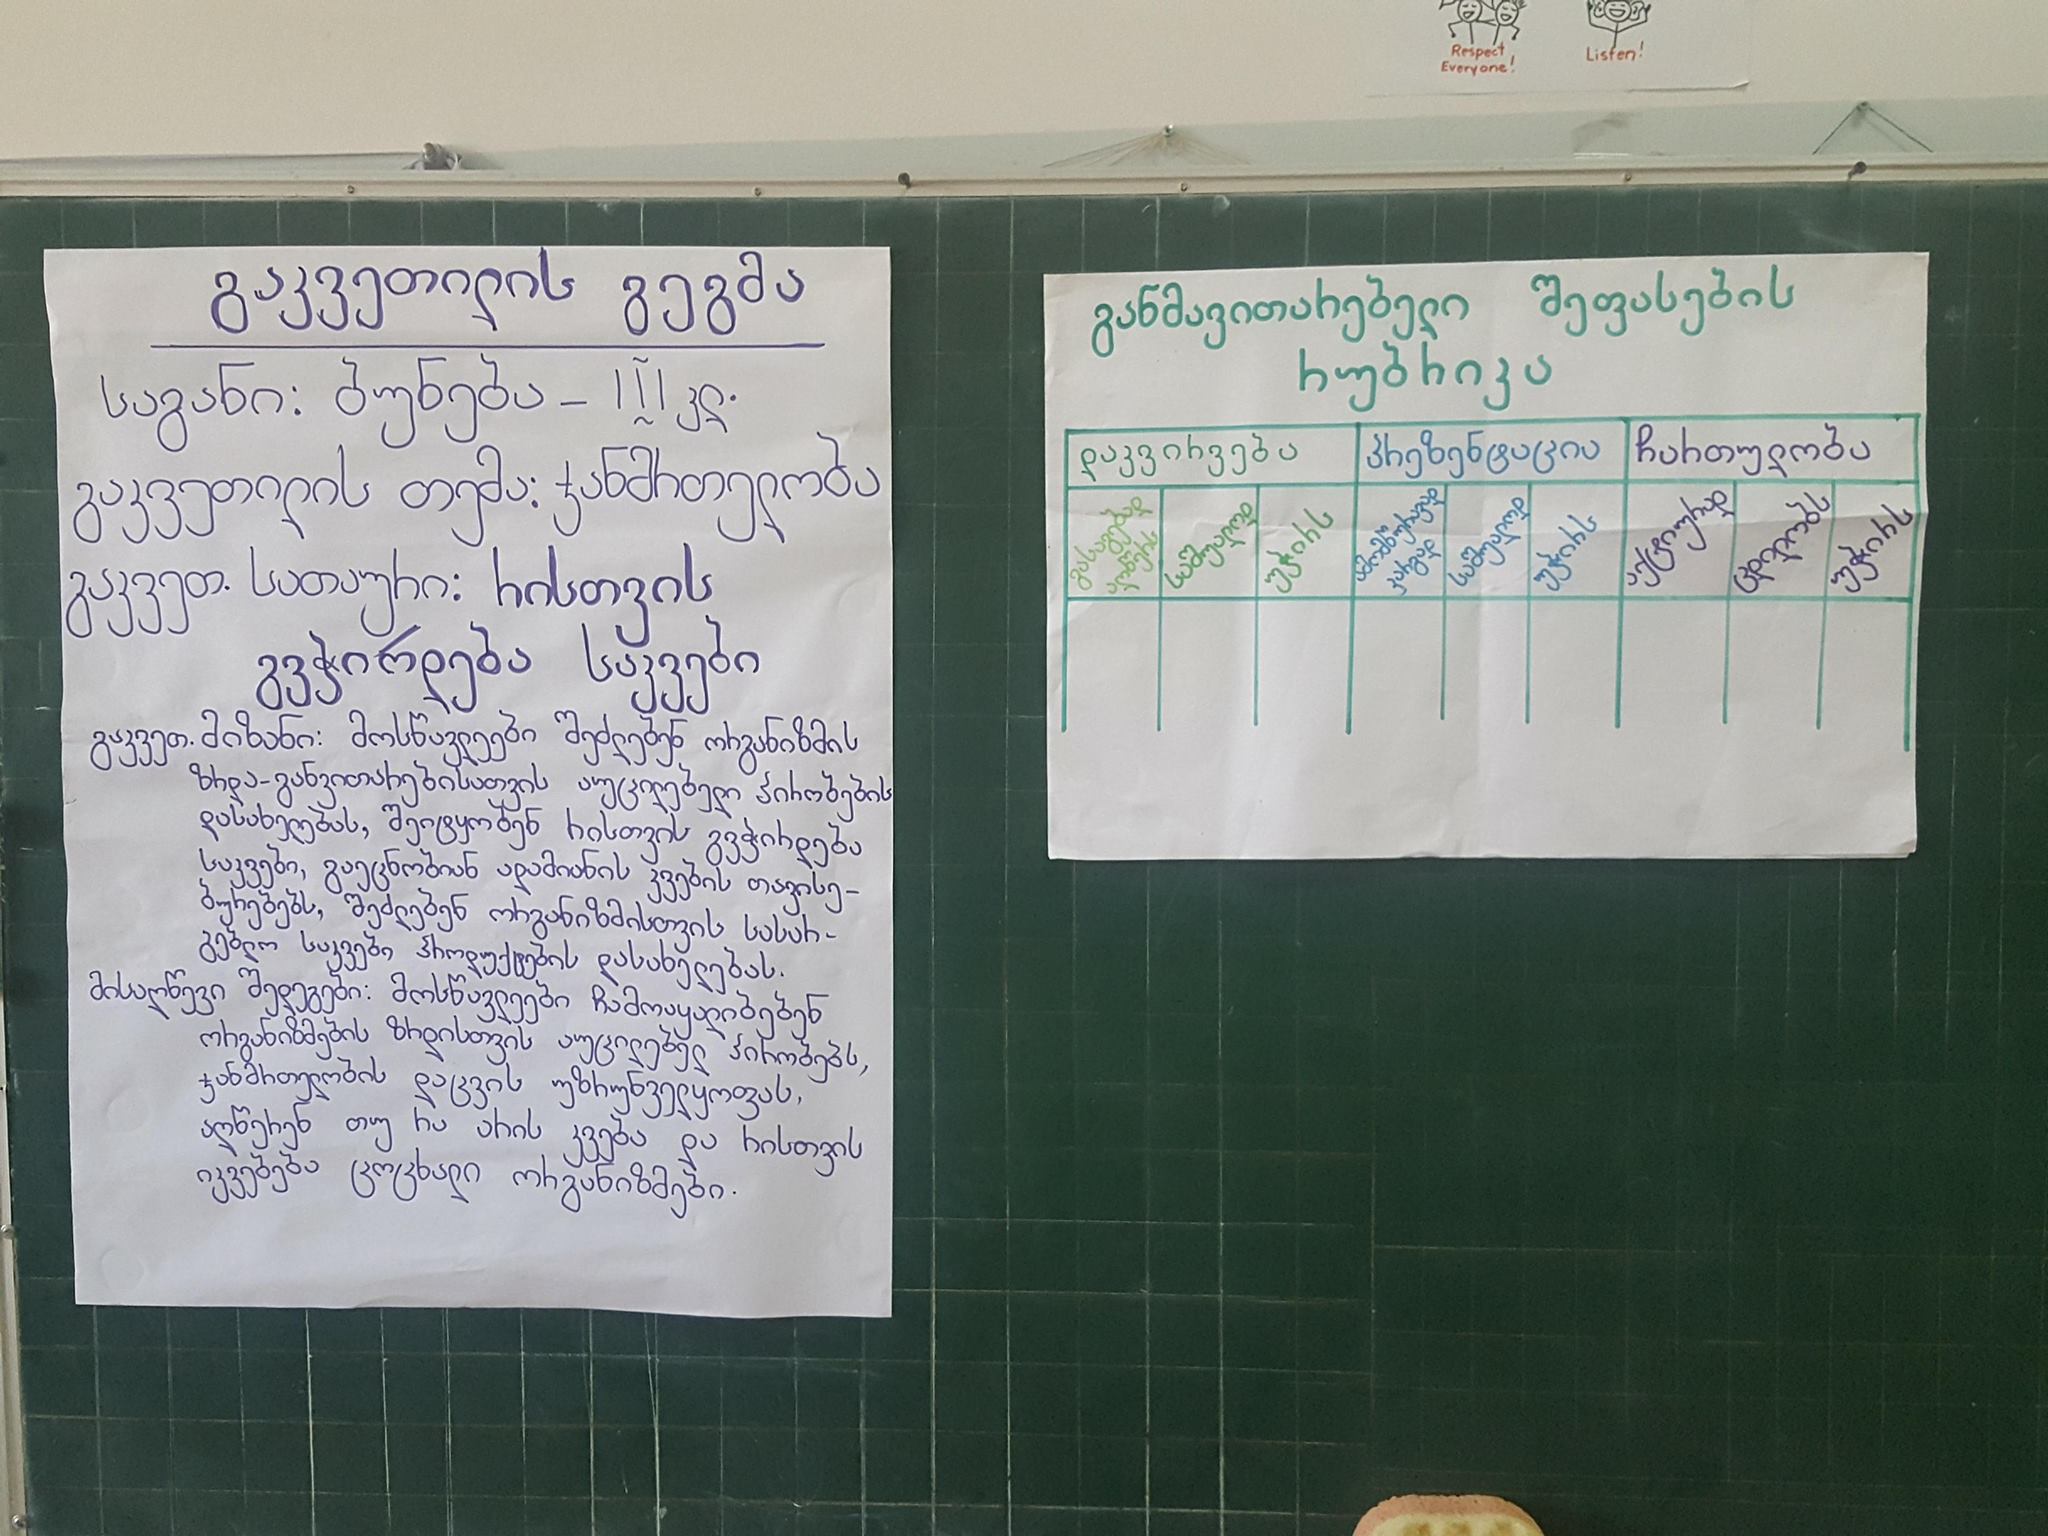 Respect
Everyone!
Listen!
გაკვეთილის გეგმა
საგანი: ბუნება – III კლ.
გაკვეთილის თემა: ჯანმრთელობა
გაკვეთ. სათაური: რისთვის
გვჭირდება საკვები
გაკვეთ. მიზანი: მოსწავლეები შეძლებენ ორგანიზმის
ზრდა-განვითარებისათვის აუცილებელი პირობების
დასახელებას, შეიტყობენ რისთვის გვჭირდება
საკვები, გაეცნობიან ადამიანის კვების თავისე-
ბურებებს, შეძლებენ ორგანიზმისთვის სასარ-
გებლო საკვები პროდუქტების დასახელებას.
მისაღწევი შედეგები: მოსწავლეები ჩამოაყალიბებენ
ორგანიზმების ზრდისთვის აუცილებელ პირობებს,
ჯანმრთელობის დაცვის უზრუნველყოფას,
აღწერენ თუ რა არის კვება და რისთვის
იკვებება ცოცხალი ორგანიზმები.
განმავითარებელი შეფასების
რუბრიკა
დაკვირვება პრეზენტაცია ჩართულობა
გასაგებად
აღწერს
საშუალოდ
უჭირს
კარგად
საშუალოდ
უჭირს
აქტიურად
ცდილობს
უჭირს